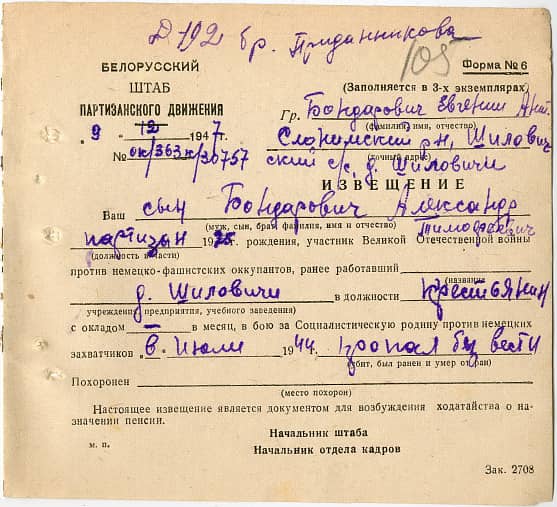 Д 192 бр. Приданникова
105
БЕЛОРУССКИЙ
ШТАБ
ПАРТИЗАНСКОГО ДВИЖЕНИЯ
„9„ 12 1947
№ ок/363к/30757
Форма № 6
(Заполняется в 3-х экземплярах)
Гр. Бондарович Евгении
(фамилия, имя, отчество)
Слонимский р-н, Шилович
(точный адрес)
ский с/с, д. Шиловичи
ИЗВЕЩЕНИЕ
Ваш сын Бондарович Александр
(муж, сын, брат, фамилия, имя и отчество) Тимофеевич
партизан 1925 г. рождения, участник Великой Отечественной войны
(должность и части)
против немецко-фашистских оккупантов, ранее работавший
(название
д. Шиловичи в должности крестьянин
учреждения, предприятия, учебного заведения)
с окладом — в месяц, в бою за Социалистическую родину против немецких
захватчиков в июле 1944 г. пропал без вести
(убит, был ранен и умер от ран)
Похоронен
(место похорон)
Настоящее извещение является документом для возбуждения ходатайства о на-
значении пенсии.
Начальник штаба
м. п.
Начальник отдела кадров
Зак. 2708